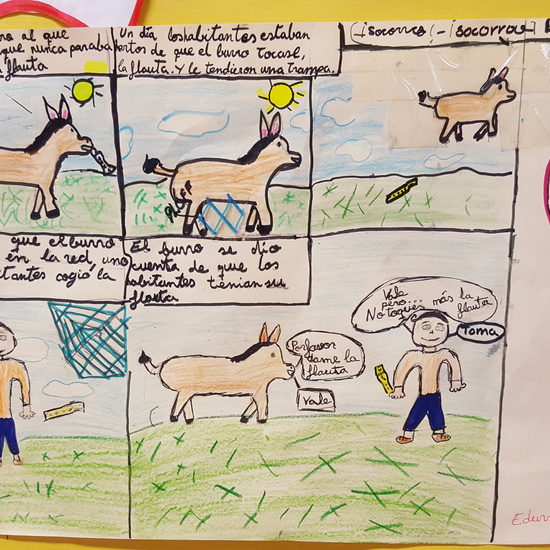 al que
que nunca paraba
flauta
Un día los habitantes estaban
artos de que el burro tocase,
la flauta. Y le tendieron una trampa.
(¡socorro (-¡socorrooo
PLAFF
que el burro
en la red, uno
tantes cogió la
El burro se dio
cuenta de que los
habitantes tenian su
flauta
Porfavor
dame la
flauta
Vale
Vale
pero...
No toques más la
flauta
Toma